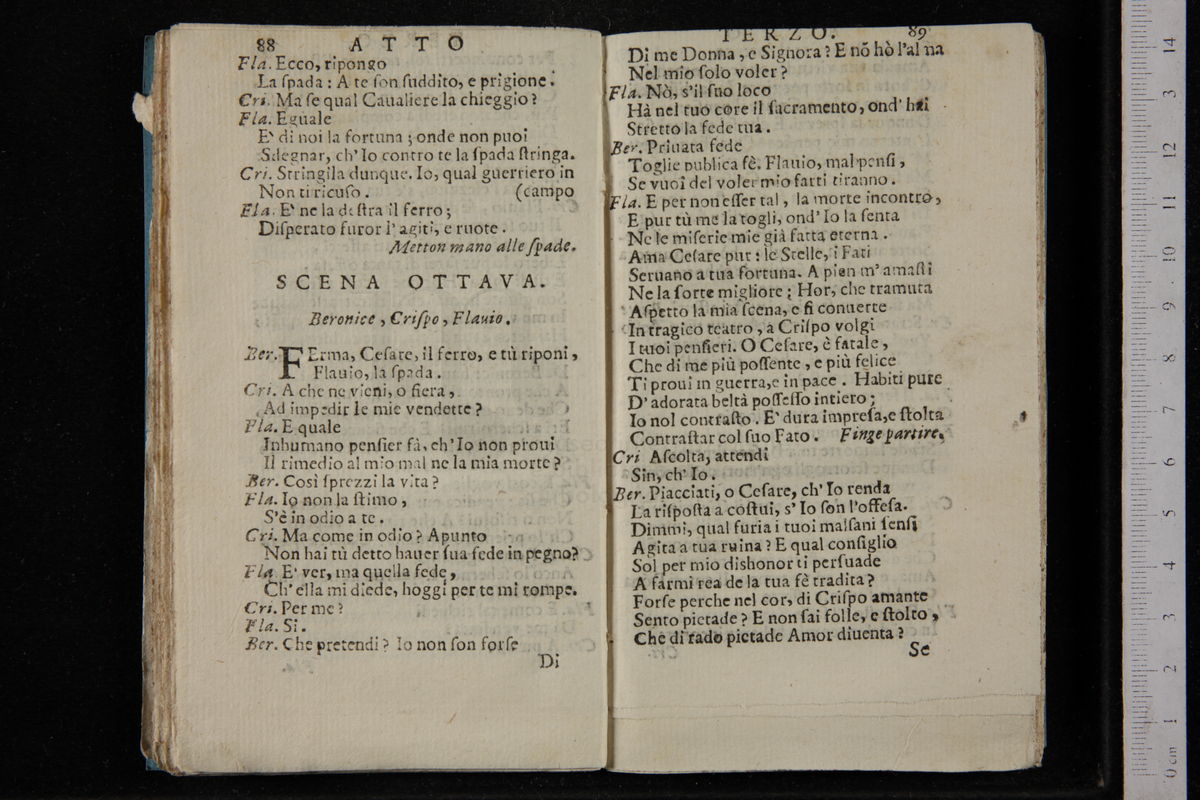 88 ATTO
Fla. Ecco, ripongo
La ſpada: A te ſon ſuddito, e prigione.
Cri. Ma ſe qual Caualiere la chieggio?
Fla. Eguale
E' di noi la fortuna; onde non puoi
Sdegnar, ch' Io contro te la ſpada ſtringa.
Cri. Stringila dunque. Io, qual guerriero in
Non ti ricuſo. (campo
Fla. E' ne la deſtra il ferro;
Diſperato furor l' agiti, e ruote.
Metton mano alle ſpade.
SCENA OTTAVA.
Beronice, Criſpo, Flauio.
Ber. FErma, Ceſare, il ferro, e tù riponi,
Flauio, la ſpada.
Cri. A che ne vieni, o fiera,
Ad impedir le mie vendette?
Fla. E quale
Inhumano penſier fà, ch' Io non proui
Il rimedio al mio mal ne la mia morte?
Ber. Così ſprezzi la vita?
Fla. Io non la ſtimo,
S'è in odio a te.
Cri. Ma come in odio? Apunto
Non hai tù detto hauer ſua fede in pegno?
Fla. E' ver, ma quella fede,
Ch' ella mi diede, hoggi per te mi rompe.
Cri. Per me?
Fla. Si.
Ber. Che pretendi? Io non ſon forſe
Di
TERZO. 89
Di me Donna, e Signora? E nõ hò l'alma
Nel mio ſolo voler?
Fla. Nò, s'il ſuo loco
Hà nel tuo core il ſacramento, ond' hai
Stretto la fede tua.
Ber. Priuata fede
Toglie publica fè. Flauio, mal penſi,
Se vuoi del voler mio farti tiranno.
Fla. E per non eſſer tal, la morte incontro,
E pur tù me la togli, ond' Io la ſenta
Ne le miſerie mie già fatta eterna.
Ama Ceſare pur: le Stelle, i Fati
Seruano a tua fortuna. A pien m' amaſti
Ne la ſorte migliore; Hor, che tramuta
Aſpetto la mia ſcena, e ſi conuerte
In tragico teatro, a Criſpo volgi
I tuoi penſieri. O Ceſare, è fatale,
Che di me più poſſente, e più felice
Ti proui in guerra, e in pace. Habiti pure
D' adorata beltà poſſeſſo intiero;
Io nol contraſto. E' dura impreſa, e ſtolta
Contraſtar col ſuo Fato. Finge partire.
Cri Aſcolta, attendi
Sin, ch' Io.
Ber. Piacciati, o Ceſare, ch' Io renda
La riſpoſta a coſtui, s' Io ſon l'offeſa.
Dimmi, qual furia i tuoi malſani ſenſi
Agita a tua ruina? E qual conſiglio
Sol per mio dishonor ti perſuade
A farmi rea de la tua fè tradita?
Forſe perche nel cor, di Criſpo amante
Sento pietade? E non ſai folle, e ſtolto,
Che di rado pietade Amor diuenta?
Se
0 cm 1 2 3 4 5 6 7 8 9 10 11 12 13 14